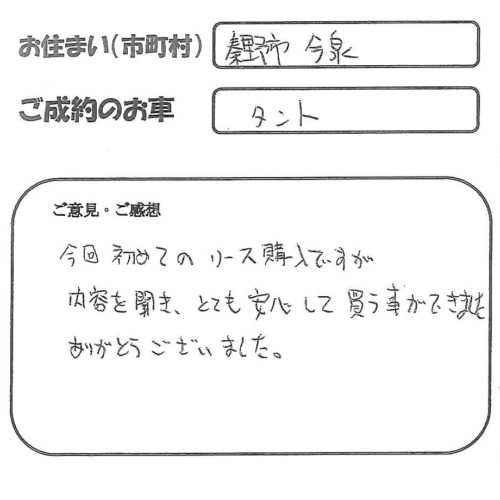 お住まい(市町村) 秦野市 今泉
ご成約のお車 タント
ご意見・ご感想
今回 初めての リース購入ですが
内容を聞き、とても 安心して 買う事ができました
ありがとうございました。